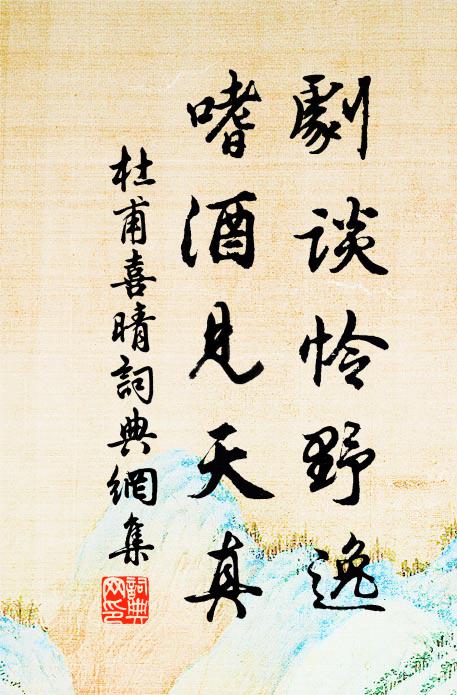 劇談怜野逸
嗜酒見天真
杜甫喜晴詞典網集
詞典網印